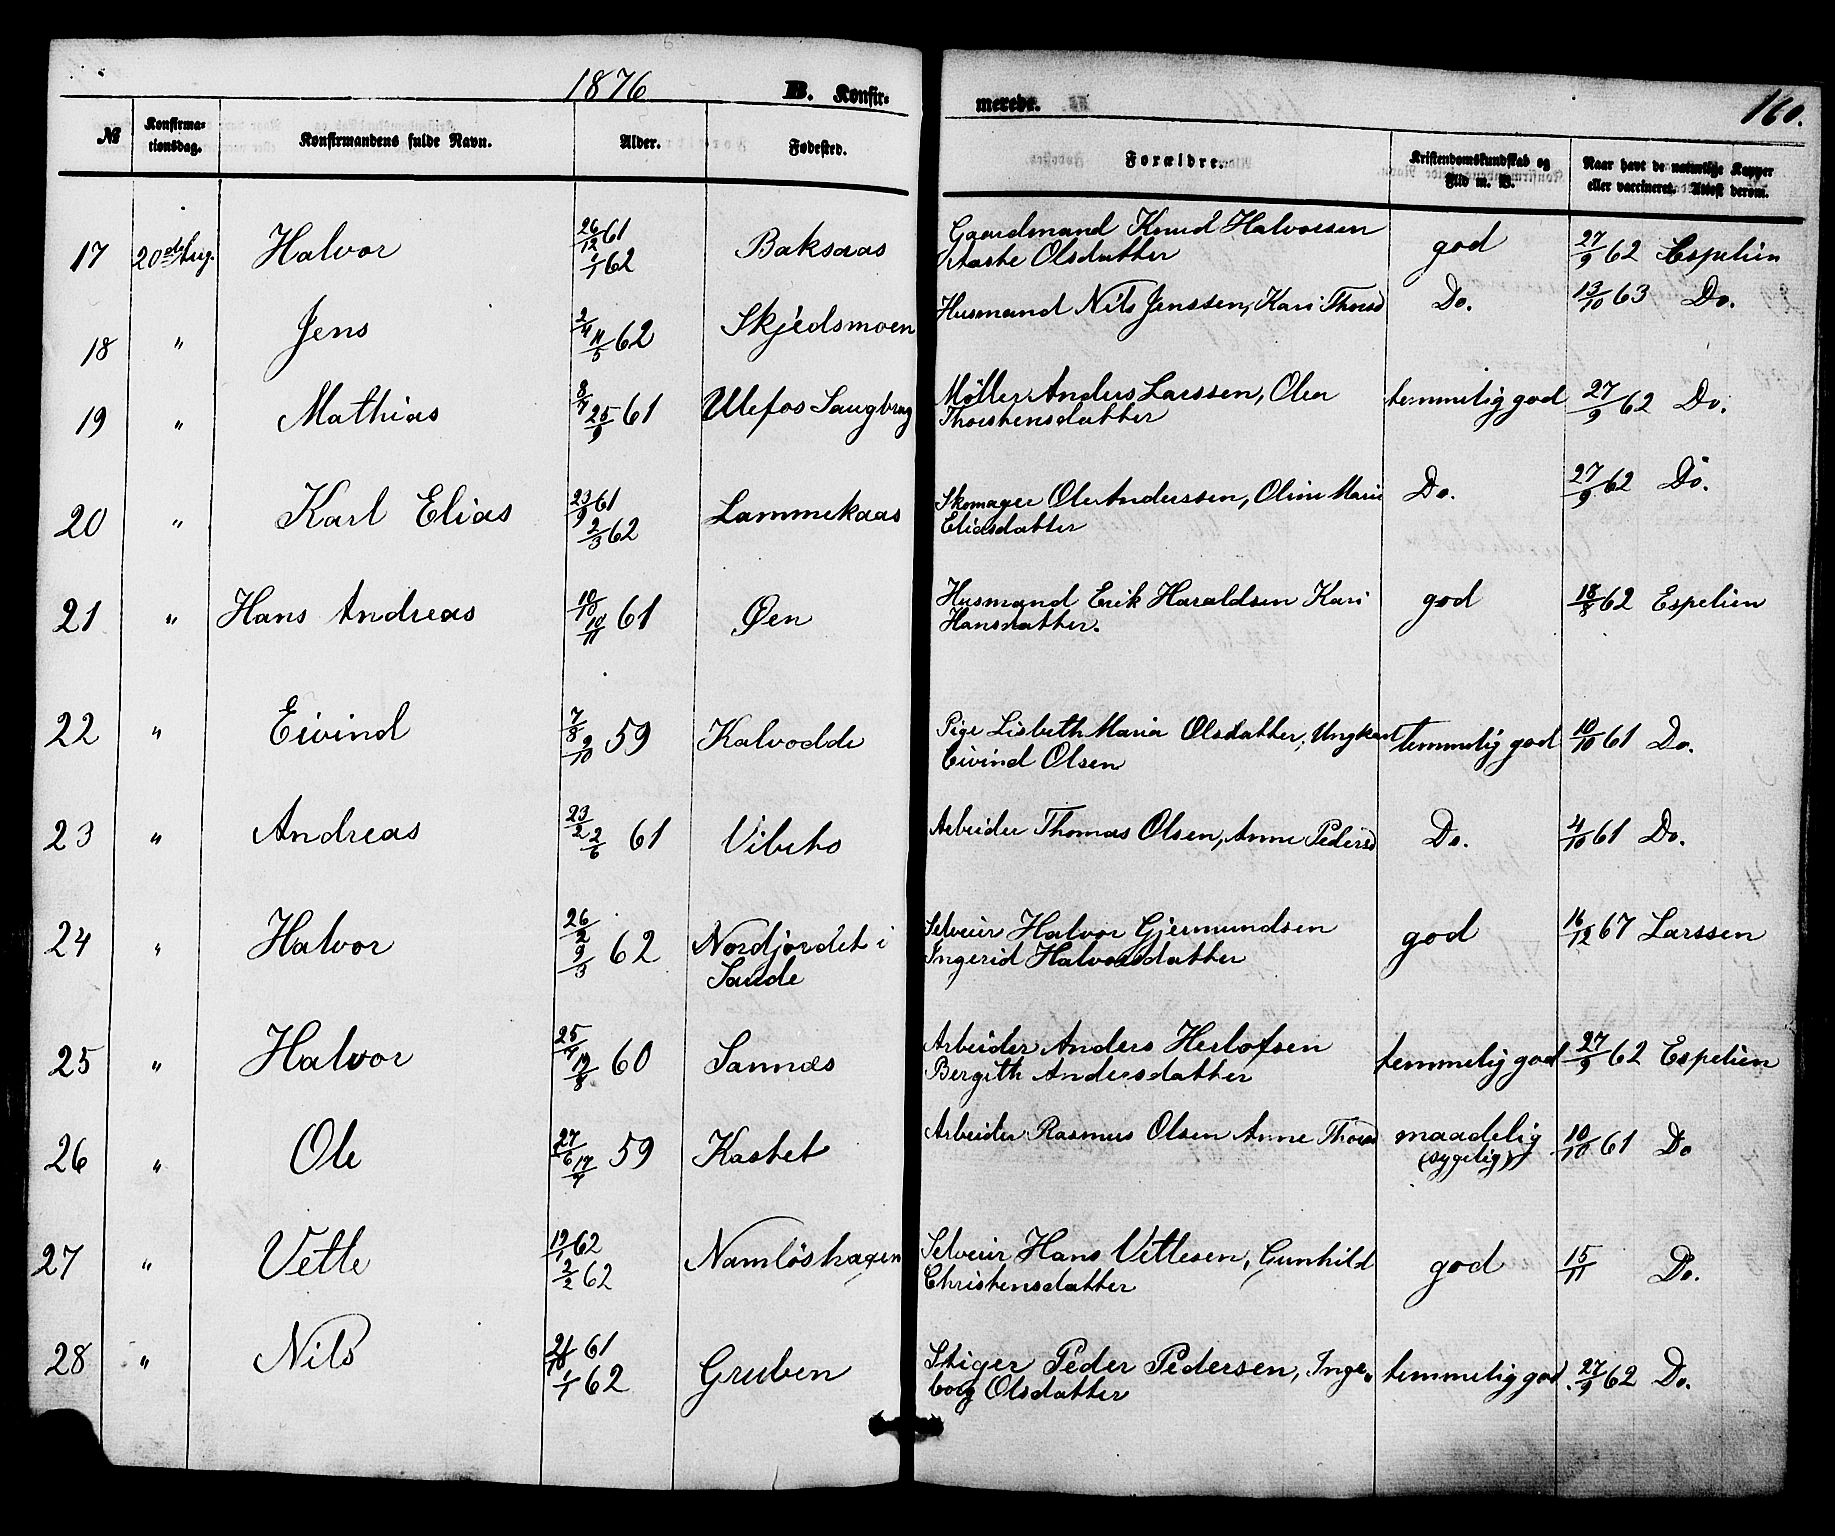 1876 B. Konfir- merede. 160.
№ Konfirmationsdag. Konfirmandens fulde Navn. Alder. Fødested. Forældre. Kristendomskundskab og Flid m. V. Naar havt de naturlige Kopper eller vaccineret. Attest derom.
17 20de Aug. Halvor 26/12 61 1/1 62 Baksaas Gaardmand Knud Halvorsen Aaste Olsdatter god 27/9 62 Espelien
18 " Jens 2/4 11/5 62 Skjedsmoen Husmand Nils Jenssen, Kari Thorsd Do. 13/10 63 Do.
19 " Mathias 8/7 25/9 61 Ulefos Saugbrug Møller Anders Larssen, Olea Thorstensdatter temmelig god 27/9 62 Do.
20 " Karl Elias 23/9 61 2/3 62 Lammekaas Skomager Ole Anderssen, Oline Marie Eliasdatter Do. 27/9 62 Do.
21 " Hans Andreas 10/10 10/11 61 Øen Husmand Erik Haraldsen Kari Hansdatter. god 18/8 62 Espelien
22 " Eivind 7/8 9/10 59 Kalvodde Pige Lisbeth Maria Olsdatter, Ungkarl Eivind Olsen temmelig god 10/10 61 Do.
23 " Andreas 23/2 2/6 61 Vibeto Arbeider Thomas Olsen, Anne Pedersd Do. 4/10 61 Do.
24 " Halvor 26/2 9/3 62 Nordjordet i Saude Selveier Halvor Gjermundsen Ingerid Halvorsdatter god 16/12 67 Larssen
25 " Halvor 25/4 19/8 60 Sannæs Arbeider Anders Herlofsen Bergith Andersdatter temmelig god 27/9 62 Espelien
26 " Ole 27/6 17/7 59 Kastet Arbeider Rasmus Olsen Anne Thorsd maadelig (sygelig) 10/10 61 Do
27 " Vetle 19/1 62 2/2 62 Namløshagen Selveier Hans Vetlesen, Gunhild Christensdatter god 15/11 Do.
28 " Nils 21/10 61 1/1 62 Gruben Stiger Peder Pedersen, Ingeborg Olsdatter temmelig god 27/9 62 Do.